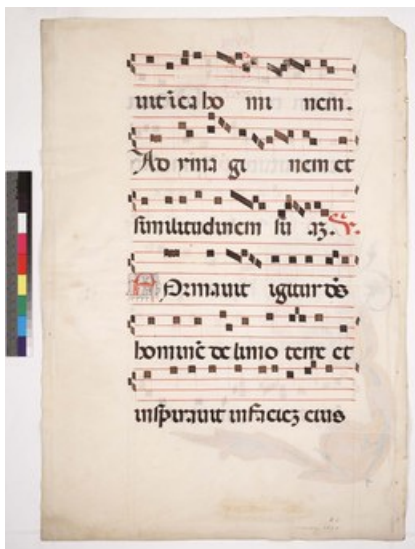 uit ica ho mi nem.
Ad ima gi nem et
similitudinem su aꝫ.
Formauit igitur dẽs
hominẽ de limo terre et
inspirauit in facieꝫ eius